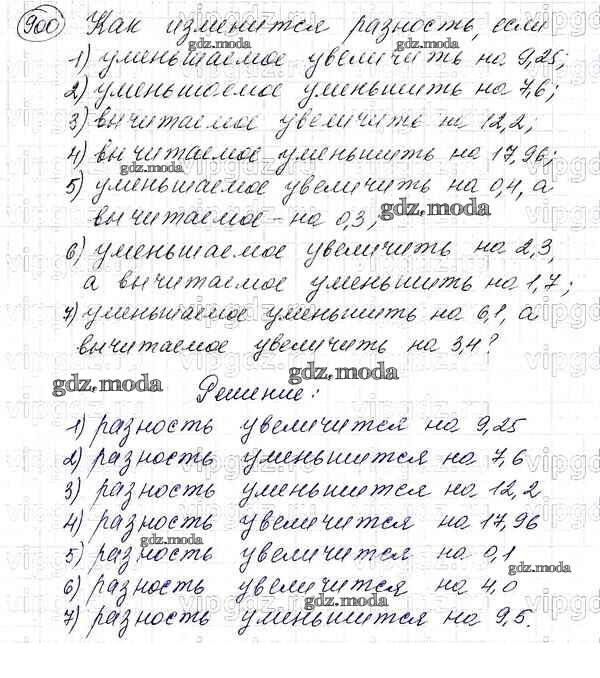 900 Как изменится разность, если
gdz.moda
1) уменьшаемое увеличить на 9,25;
gdz.moda
2) уменьшаемое уменьшить на 7,6;
3) вычитаемое увеличить на 12,2;
4) вычитаемое уменьшить на 17,96;
gdz.moda
5) уменьшаемое увеличить на 0,4, а
вычитаемое - на 0,3;
gdz.moda
6) уменьшаемое увеличить на 2,3,
а вычитаемое уменьшить на 1,7;
7) уменьшаемое уменьшить на 6,1, а
вычитаемое увеличить на 3,4?
gdz.moda
gdz.moda
Решение:
1) разность увеличится на 9,25
2) разность уменьшится на 7,6
3) разность уменьшится на 12,2
4) разность увеличится на 17,96
gdz.moda
5) разность увеличится на 0,1
gdz.moda
6) разность увеличится на 4,0
gdz.moda
7) разность уменьшится на 9,5.